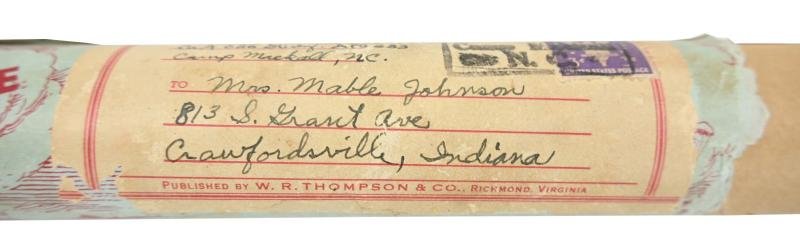 Camp Mackall, N.C.
TO Mrs. Mable Johnson
813 S. Grant Ave
Crawfordsville, Indiana
PUBLISHED BY W. R. THOMPSON & CO., RICHMOND, VIRGINIA
E
N.
UNITED STATES POSTAGE